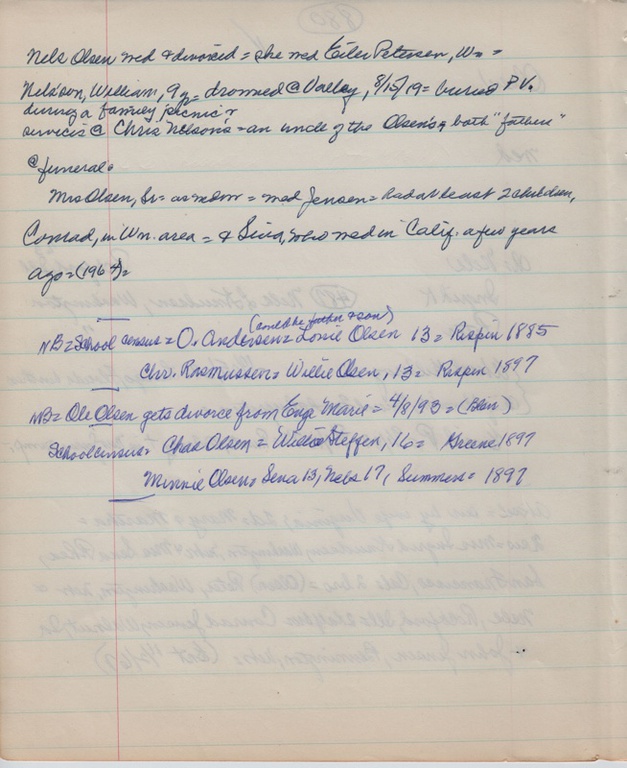 Nels Olsen med & divorced = she med Eiler Petersen, Wn =
Nelson, William, 9y = drowned @ Valley, 8/15/19 = buried P.V.
during a family picnic &
services @ Chris Nelson's = an uncle of the Olsen's & both "fathers"
@ funeral.
Mrs Olsen, Sr = as wdow = med Jensen = had at least 2 children,
Conrad, in Wn. area = & Sina, who med in Calif. a few years
ago = (1964) =
(could be father & son)
NB = School census = O. Andersen = Louie Olsen 13 = Rispin 1885
Chr. Rasmussen = Willie Olsen, 13 = Rispin 1897
NB = Ole Olsen gets divorce from Eug Marie = 4/8/93 = (Blair)
School census = Chas Olsen = Steffen, 16 = Greene 1897
Minnie Olsen = Sena 13, Nels 17, Summers = 1897